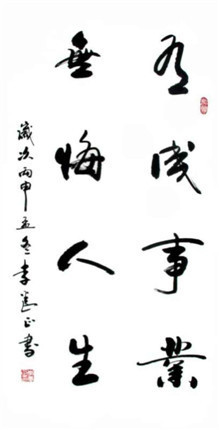 有成事業
無悔人生
歲次丙申孟冬李正書